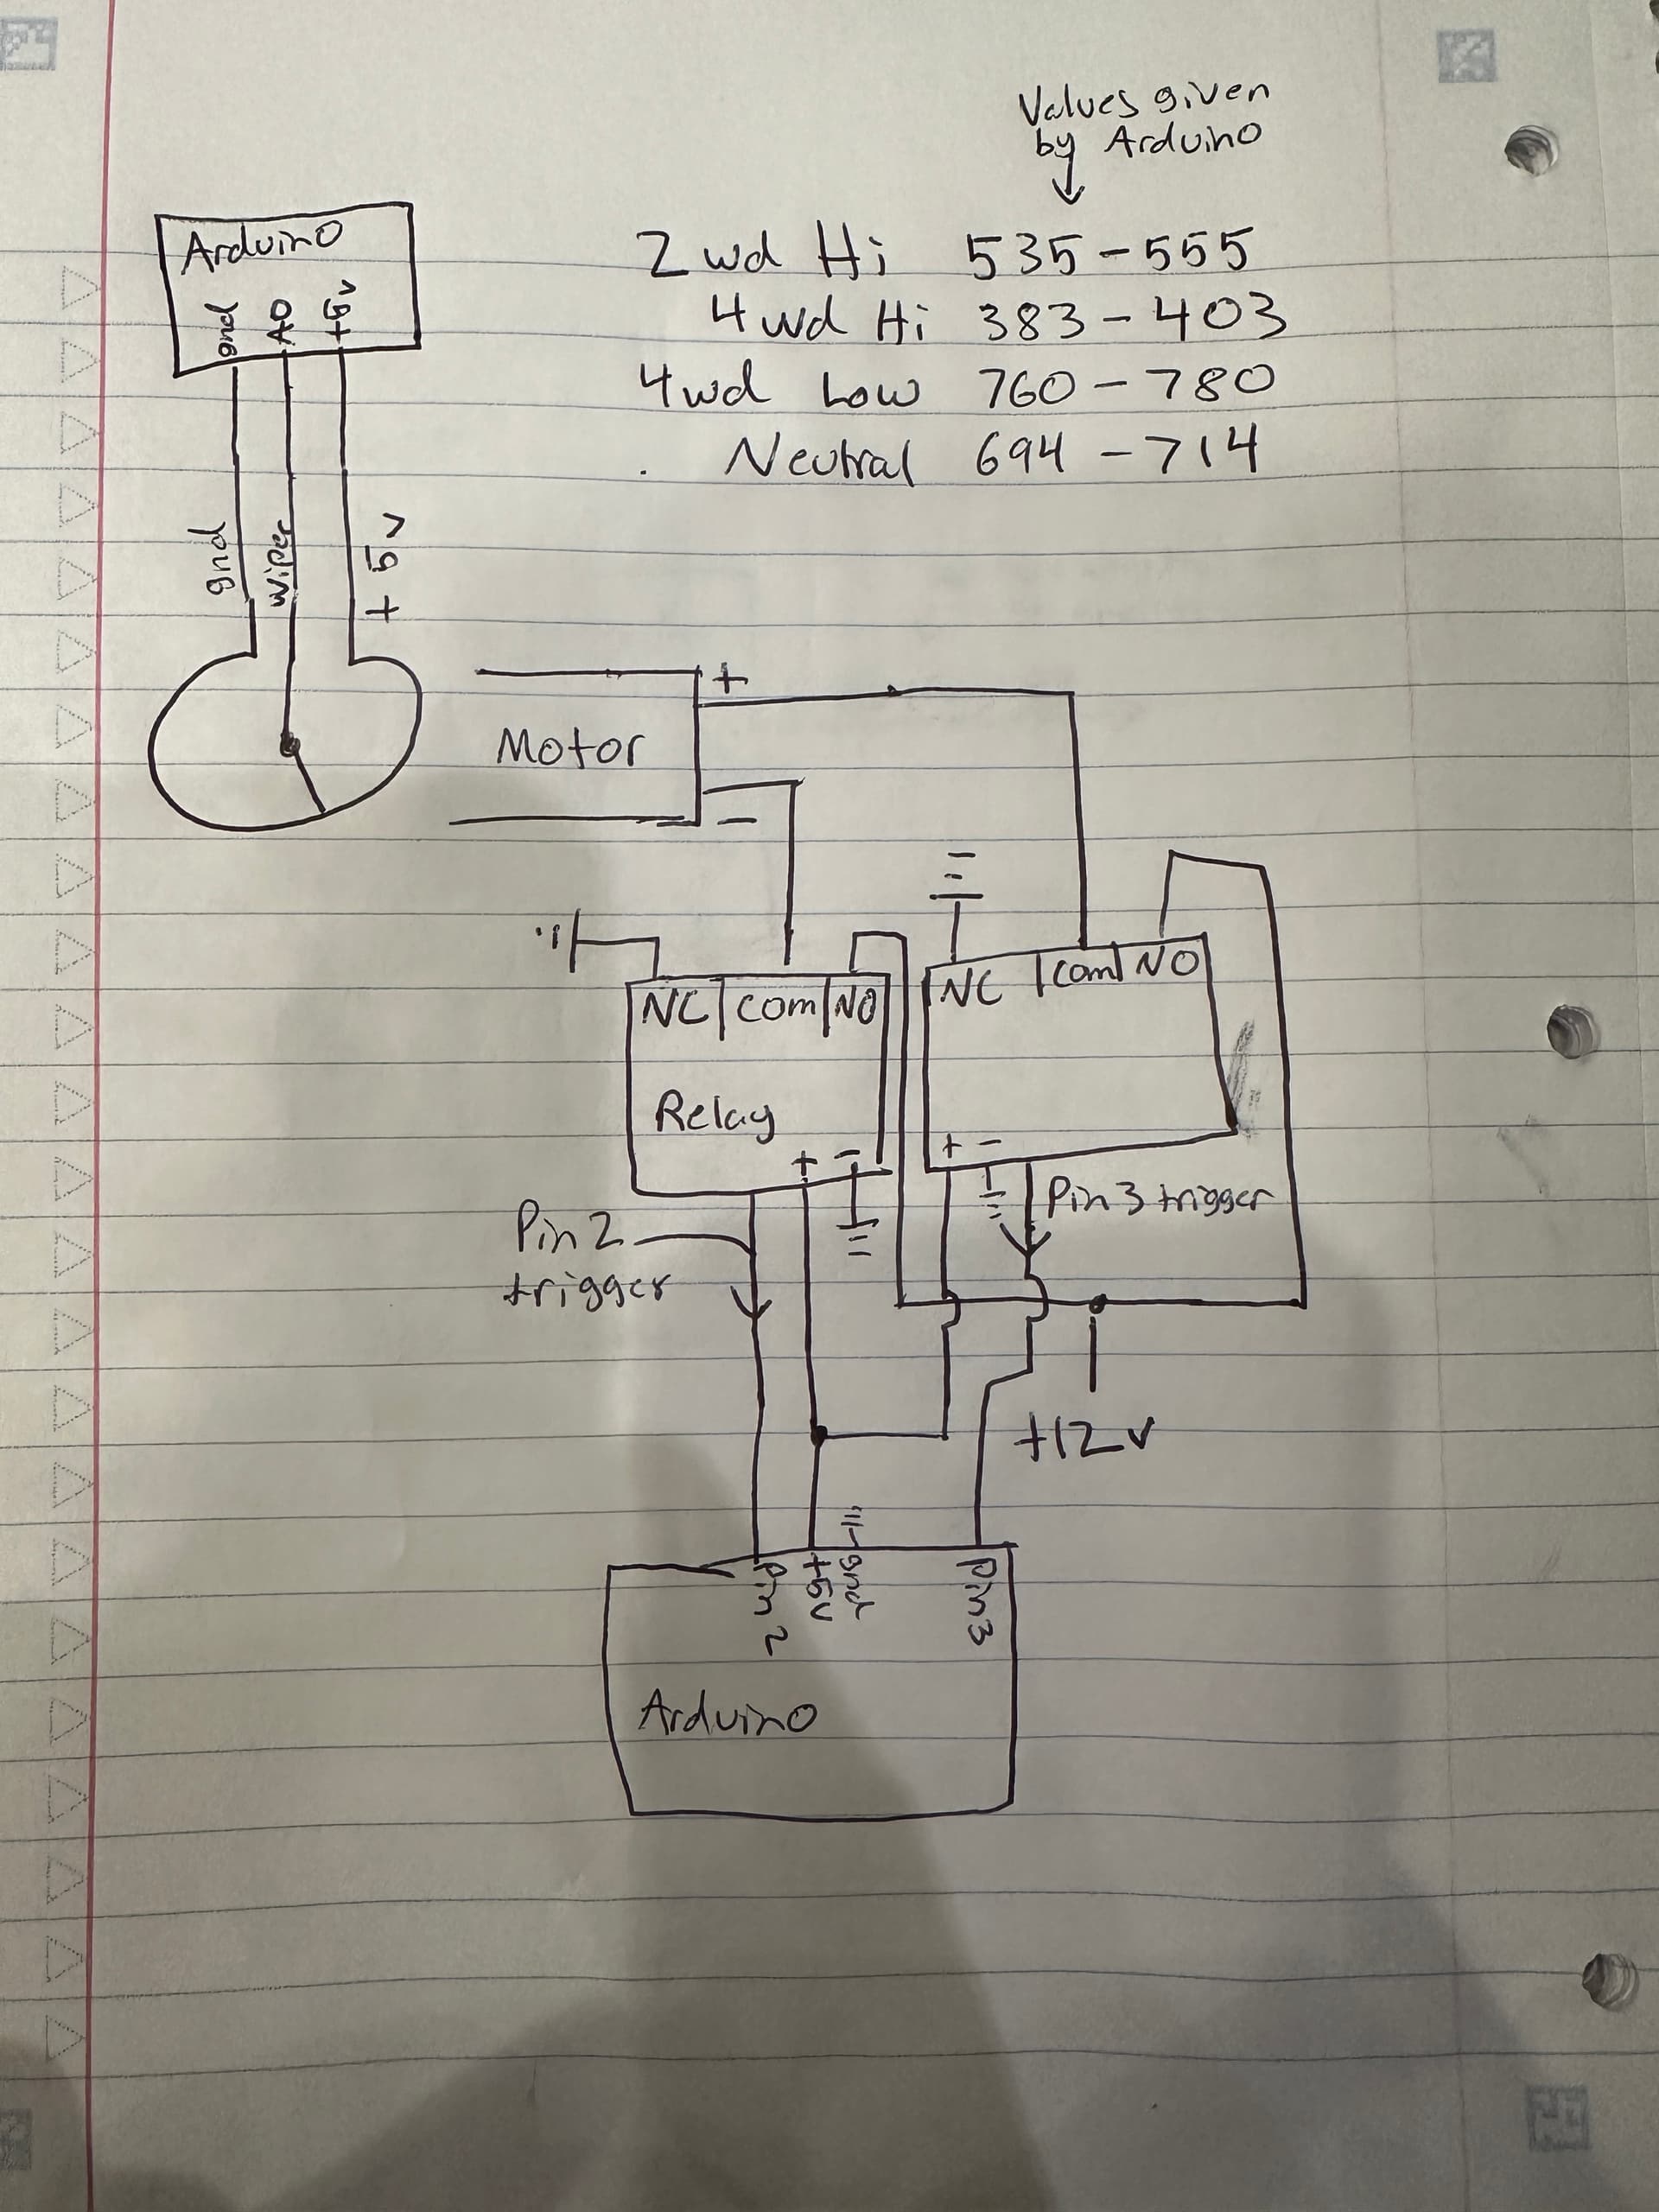 Values given
by Arduino
2wd Hi 535-555
4wd Hi 383-403
4wd Low 760-780
Neutral 694-714
Arduino
gnd
A0
+5v
gnd
wiper
+5v
Motor
+
-
NC
com
NO
Relay
+
-
NC
com
NO
+
-
Pin 2
trigger
Pin 3 trigger
+12v
Pin 2
+5v
gnd
Pin3
Arduino